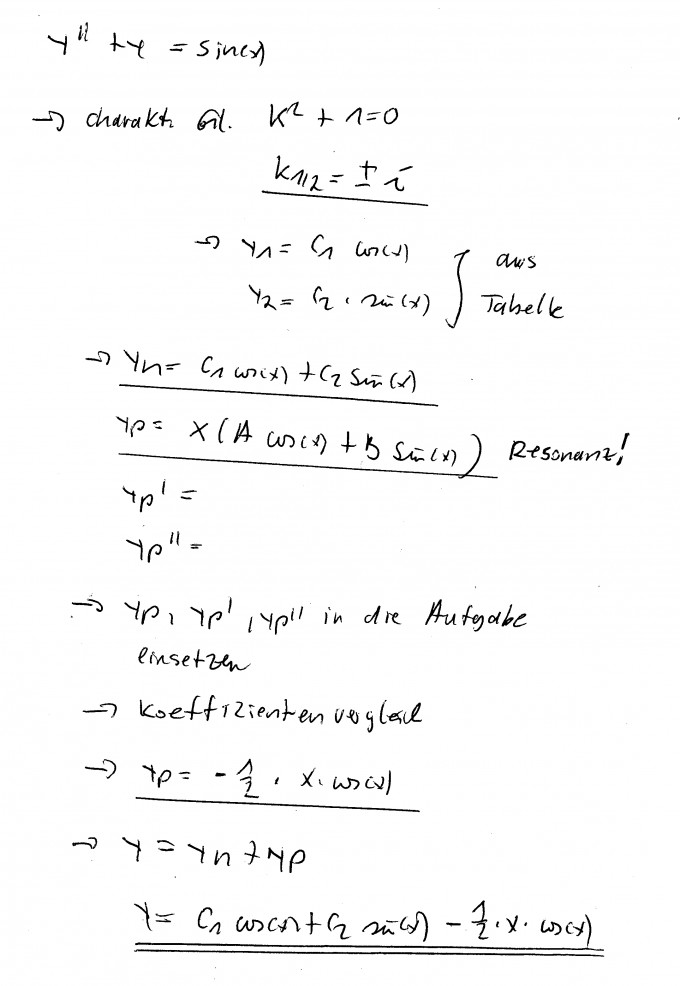 y'' + y = sin(x)
→ charakt. Gl. k² + 1 = 0
k1/2 = ± i
→ y1 = C1 cos(x)
y2 = C2 · sin(x) } aus Tabelle
→ yh = C1 cos(x) + C2 sin(x)
yp = x (A cos(x) + B sin(x)) Resonanz!
yp' =
yp'' =
→ yp, yp', yp'' in die Aufgabe
einsetzen
→ Koeffizientenvergleich
→ yp = - 1/2 · x · cos(x)
→ y = yh + yp
y = C1 cos(x) + C2 sin(x) - 1/2 · x · cos(x)